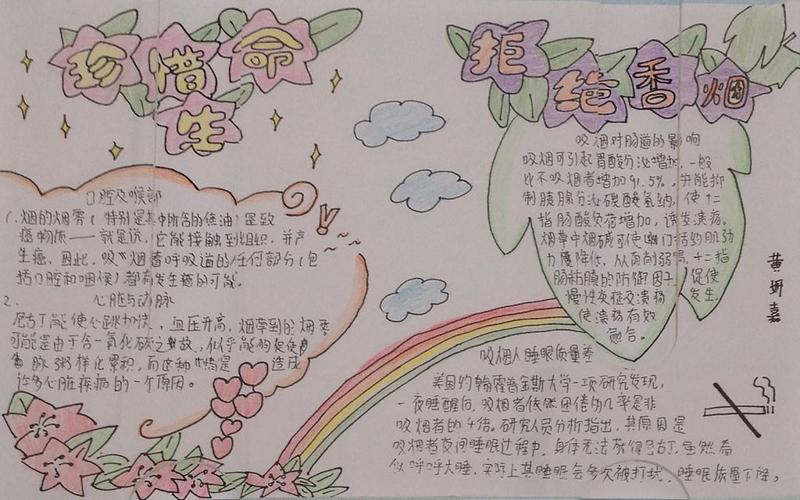 珍惜命
生
拒绝香烟
口腔及喉部
1.烟的烟雾(特别是其中所含的焦油)是致
癌物质——就是说,它能接触到的组织,并产
生癌,因此,吸烟者呼吸道的任何部分(包
括口腔和咽喉)都有发生癌的可能。
2. 心脏与动脉
尼古丁能使心跳加快,血压升高,烟草的烟雾
可能是由于含一氧化碳之故,似乎能够促使
脉粥样化累积,而这种情是造成
许多心脏疾病的一个原因。
吸烟对肠道的影响
吸烟可引起胃酸分泌增加,一般
比不吸烟者增加91.5%,并能抑
制胰腺分泌碳酸氢钠,使十二
指肠酸负荷增加,诱发溃疡。
烟草中烟碱可使幽门括约肌张
力降低,从而削弱胃、十二指
肠粘膜的防御因子,促使
慢性炎症及溃疡发生,
使溃疡有效
愈合。
吸烟人睡眠质量差
美国约翰霍普金斯大学一项研究发现,
一夜睡醒后,吸烟者依然困倦的几率是非
吸烟者的4倍。研究人员分析指出,其原因是
吸烟者夜间睡眠过程中,身体无法获得尼古丁,虽然看
似呼呼大睡,实际上其睡眠会多次被打扰,睡眠质量下降。
黄妍嘉